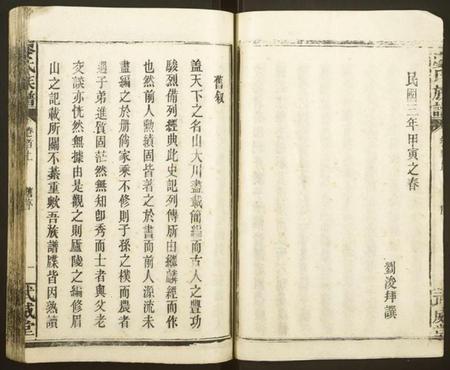 民國三年甲寅之春
劉浚拜譔
舊叙
蓋天下之名山大川盡載簡編而古人之豐功
駿烈備列經典此史記列傳所由繼麟經而作
也然前人勲績固皆著之於書而前人源流未
盡編之於册倘家乘不修則子孫之樸而農者
遇子弟進質固茫然無知卽秀而士者與父老
交談亦恍然無據由是觀之則廬陵之編修眉
山之記載所關不綦重歟吾族譜牒皆因熟讀
氏族譜
卷首上
一
武威堂